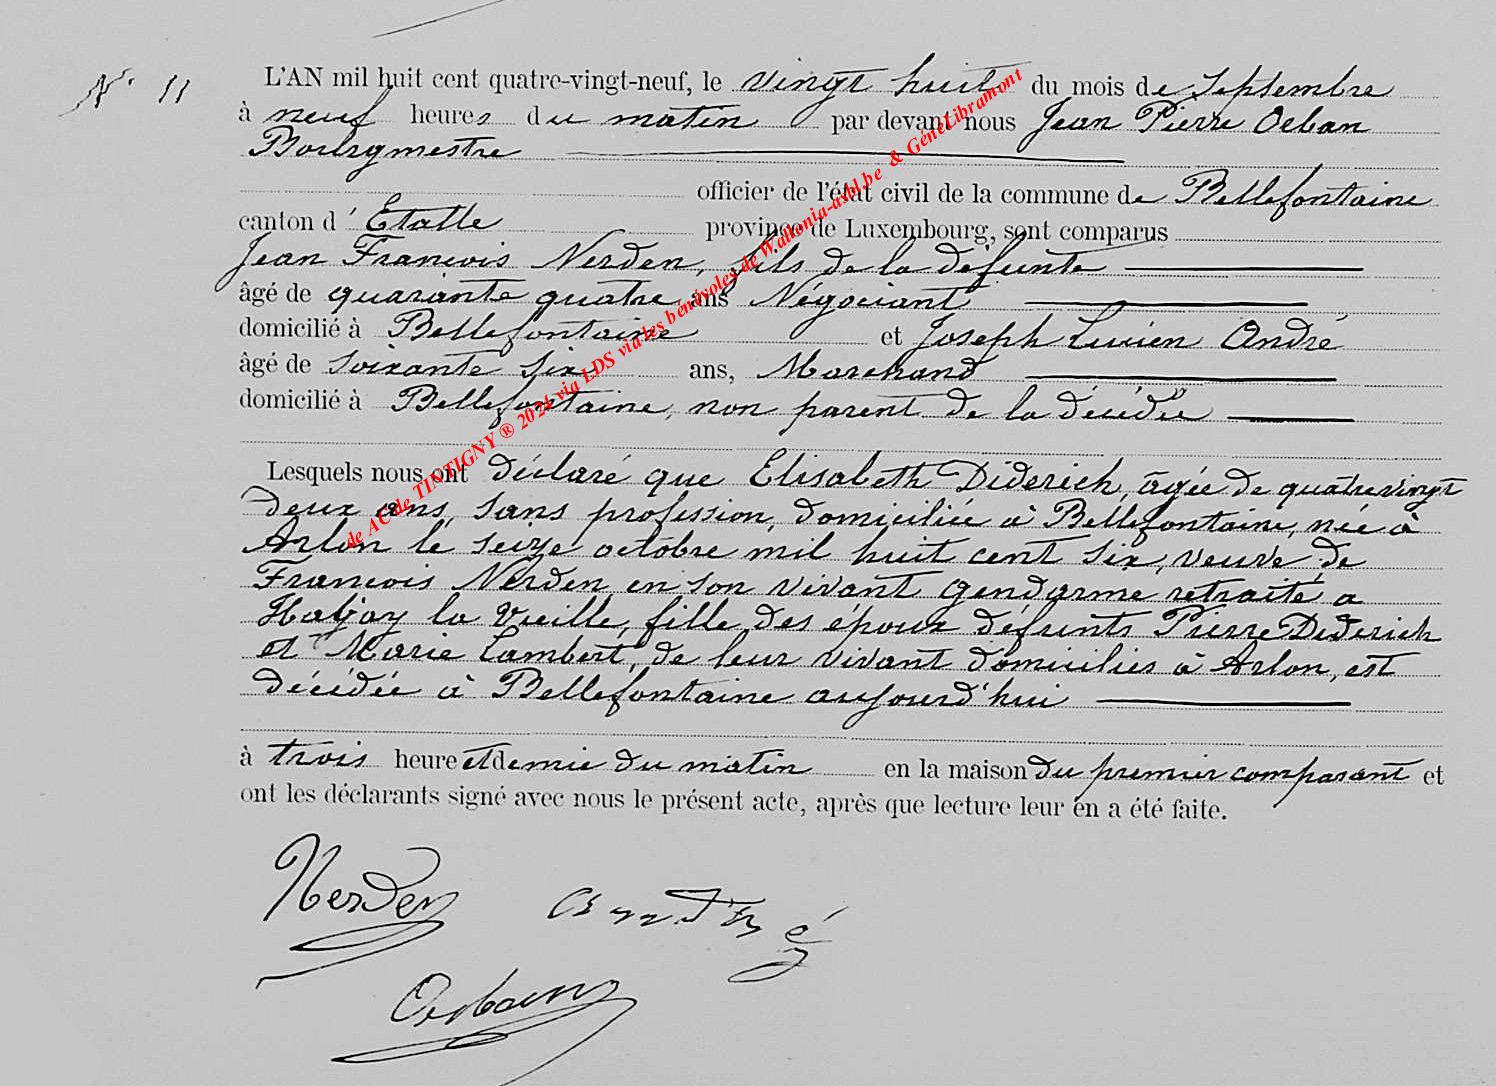 N° 11
L'AN mil huit cent quatre-vingt-neuf, le vingt huit du mois de Septembre
à neuf heures du matin par devant nous Jean Pierre Orban
Bourgmestre
officier de l'état civil de la commune de Bellefontaine
canton d'Etalle province de Luxembourg, sont comparus
Jean Francois Nerden, fils de la défunte
âgé de quarante quatre ans Négociant
domicilié à Bellefontaine et Joseph Lucien André
âgé de soixante six ans, Marchand
domicilié à Bellefontaine, non parent de la décédée
Lesquels nous ont déclaré que Elisabeth Diderich, agée de quatrevingt
deux ans, sans profession, domiciliée à Bellefontaine, née à
Arlon le seize octobre mil huit cent six, veuve de
Francois Nerden en son vivant gendarme retraité a
Habay la Vieille, fille des époux défunts Pierre Diderich
et Marie Lambert, de leur vivant domiciliés à Arlon, est
décédée à Bellefontaine aujourd'hui
à trois heure et demie du matin en la maison du premier comparant et
ont les déclarants signé avec nous le présent acte, après que lecture leur en a été faite.
Nerden André
Orban
de AC de TINTIGNY ® 2024 via LDS via les bénévoles de Wallonia-asbl.be & GénéLibramont